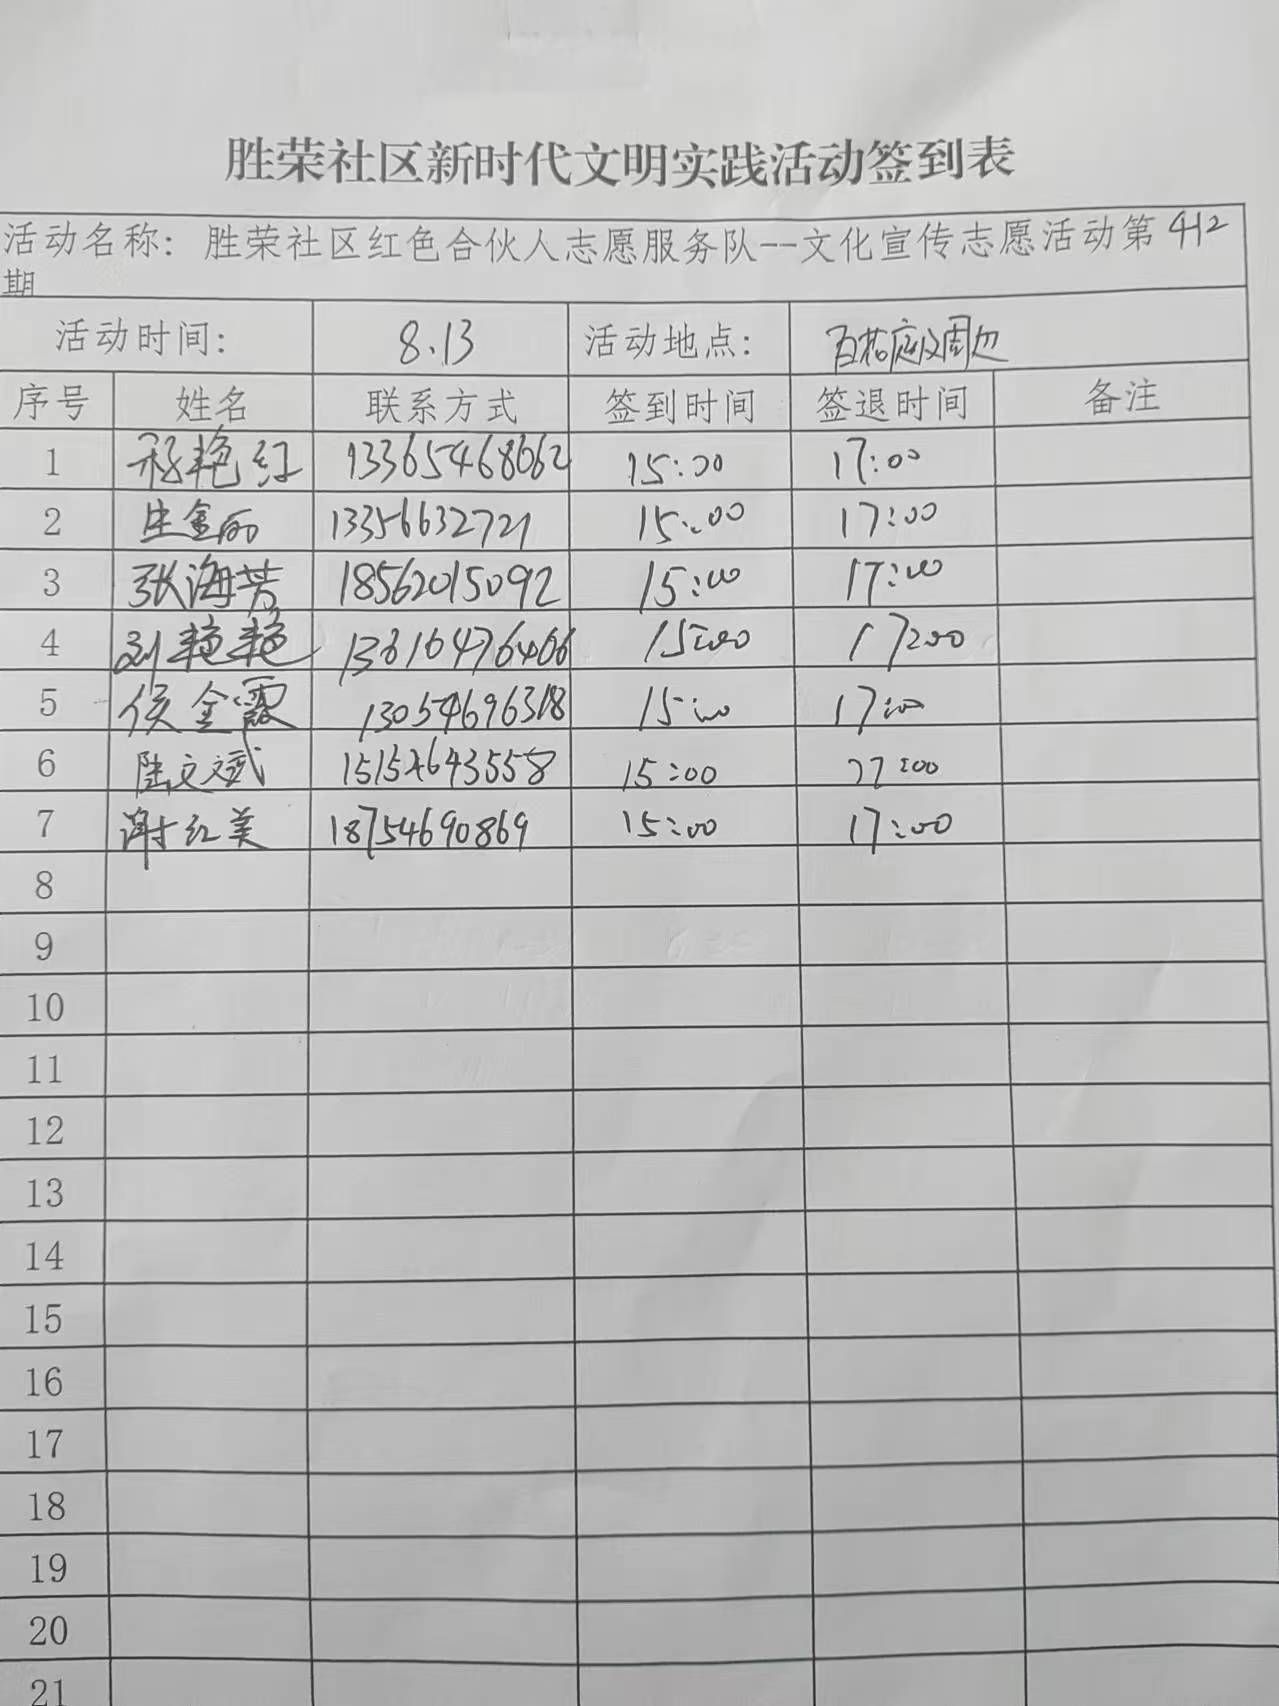 胜荣社区新时代文明实践活动签到表
活动名称：胜荣社区红色合伙人志愿服务队--文化宣传志愿活动第412
期
活动时间： 8.13 活动地点： 百花庭及周边
序号 姓名 联系方式 签到时间 签退时间 备注
1 艳红 13365468662 15:00 17:00
2 金丽 13356632721 15:00 17:00
3 张海芳 18562015092 15:00 17:00
4 刘艳艳 15:00 17:00
5 侯金霞 13054696318 15:00 17:00
6 陆文斌 15154643558 15:00 17:00
7 谢红美 18754690869 15:00 17:00
8
9
10
11
12
13
14
15
16
17
18
19
20
21